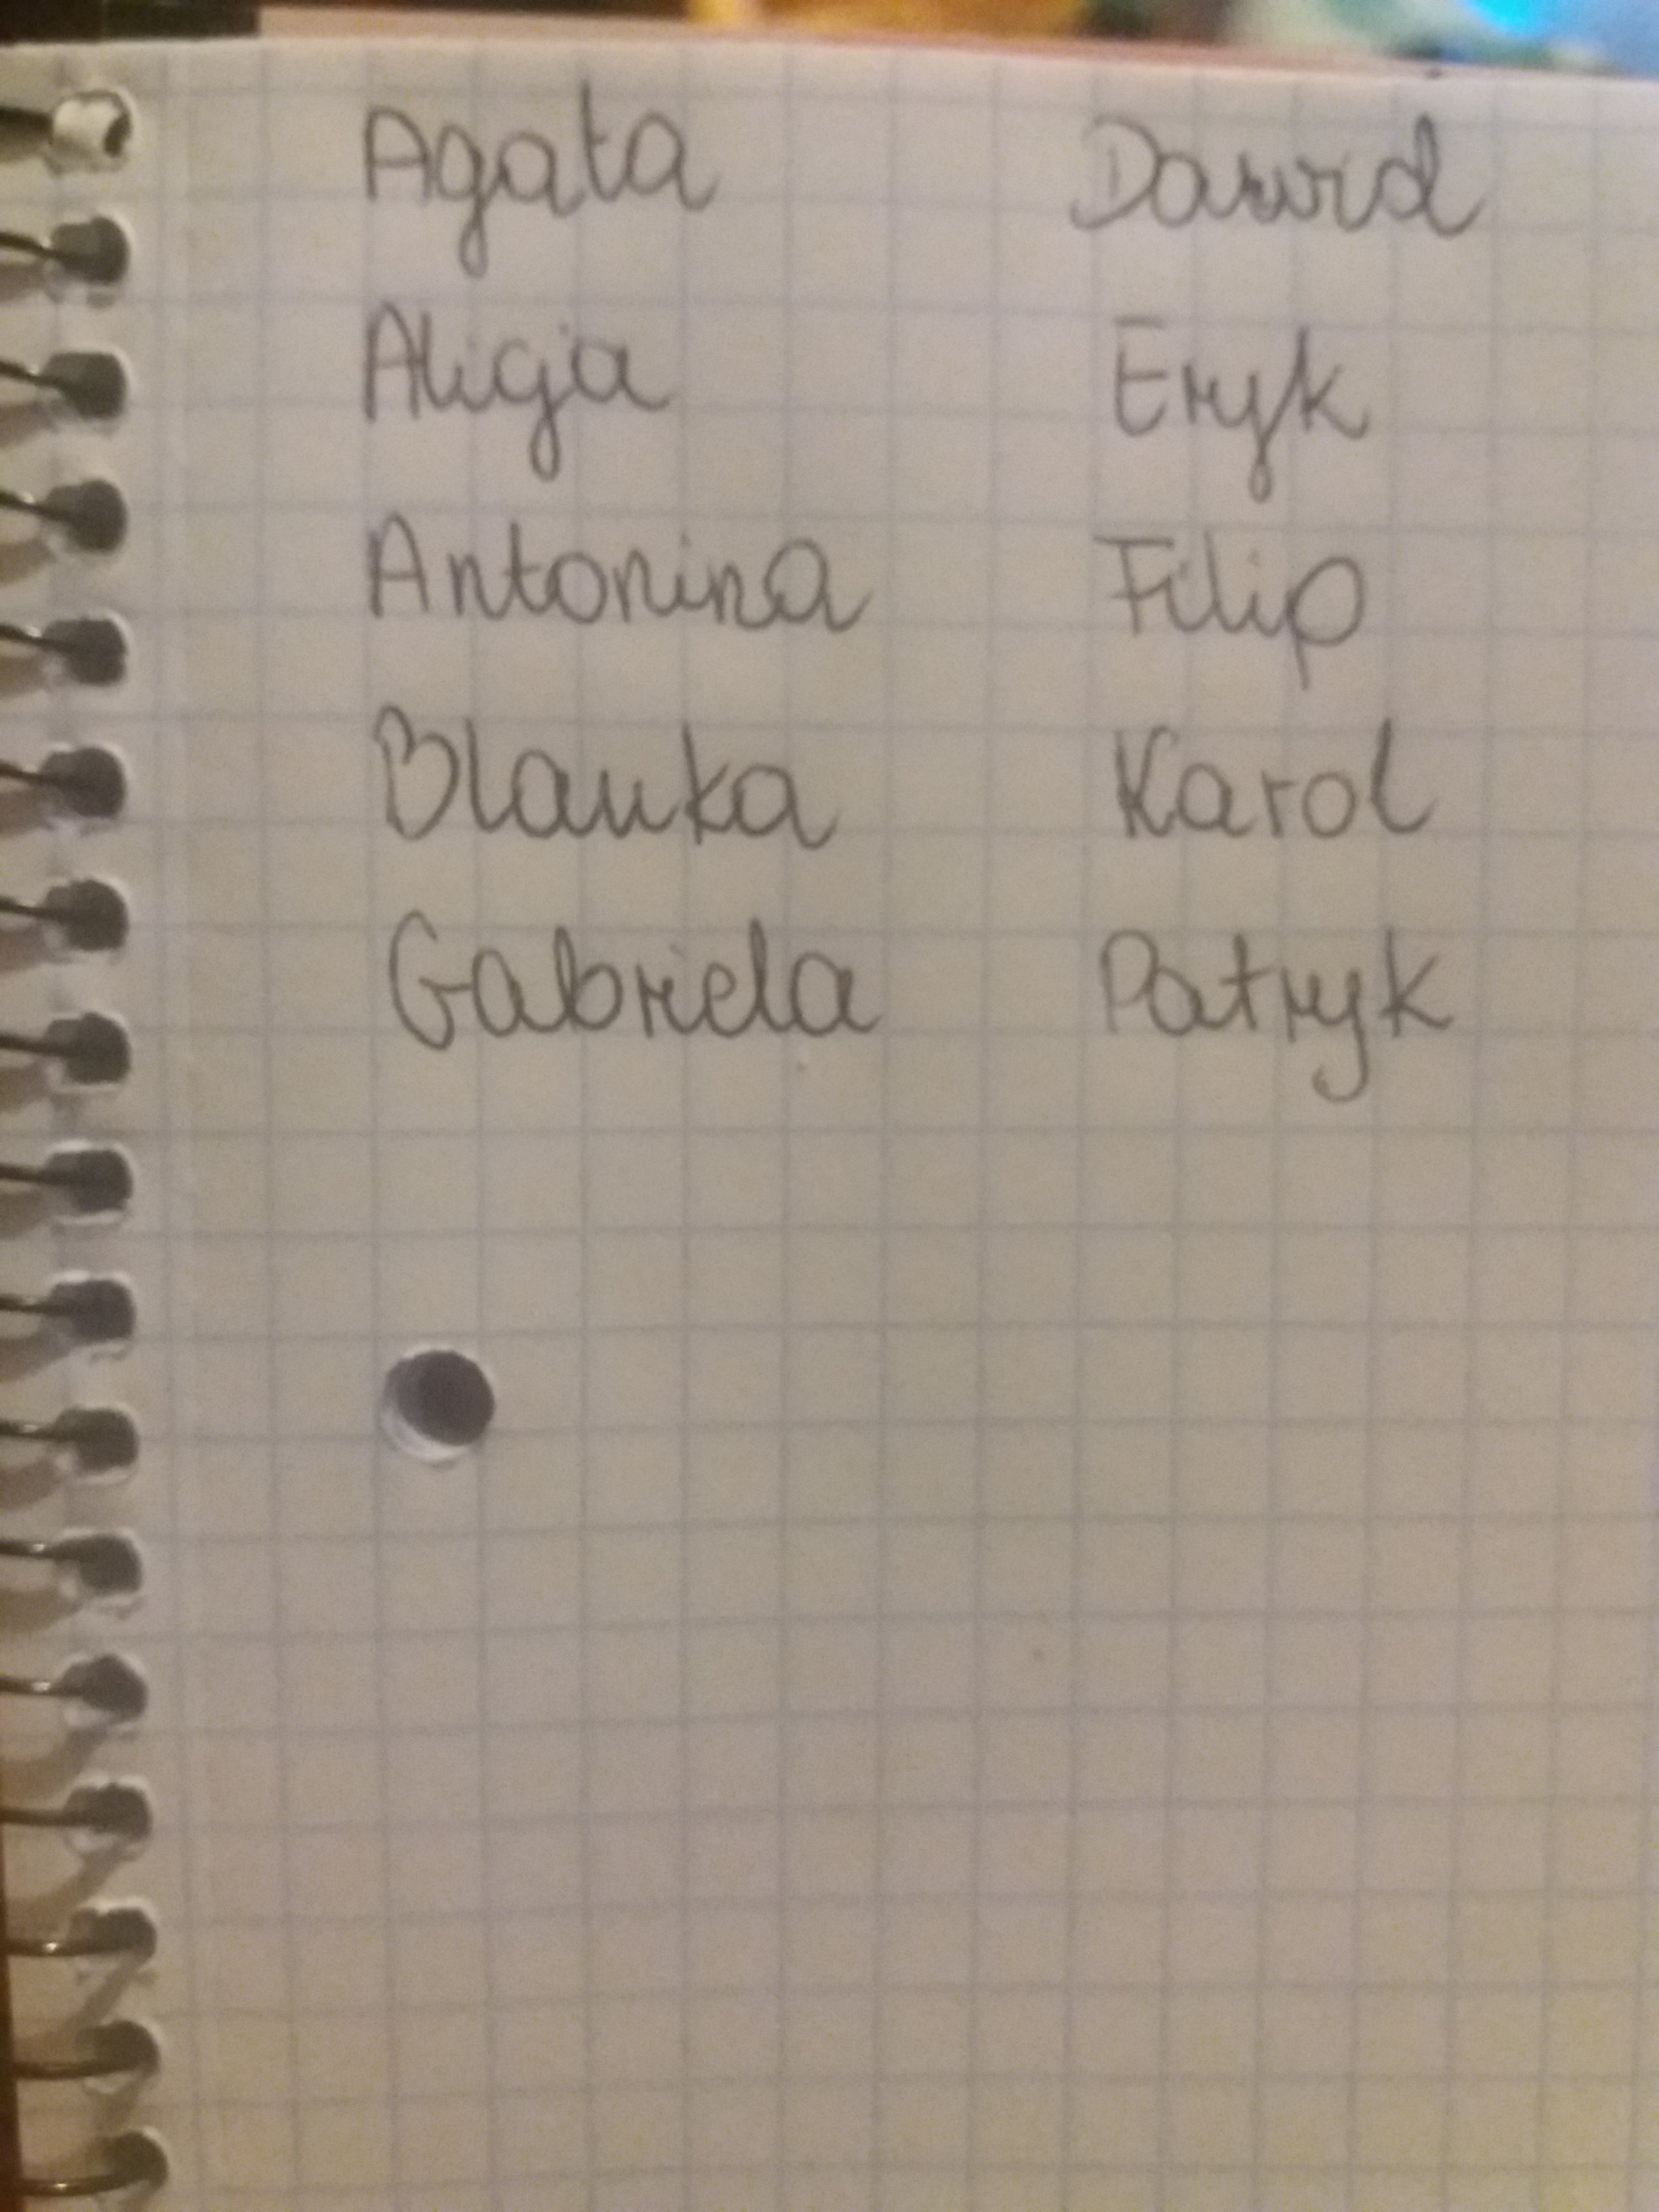 Agata Dawid
Alicja Eryk
Antonina Filip
Blanka Karol
Gabriela Patryk